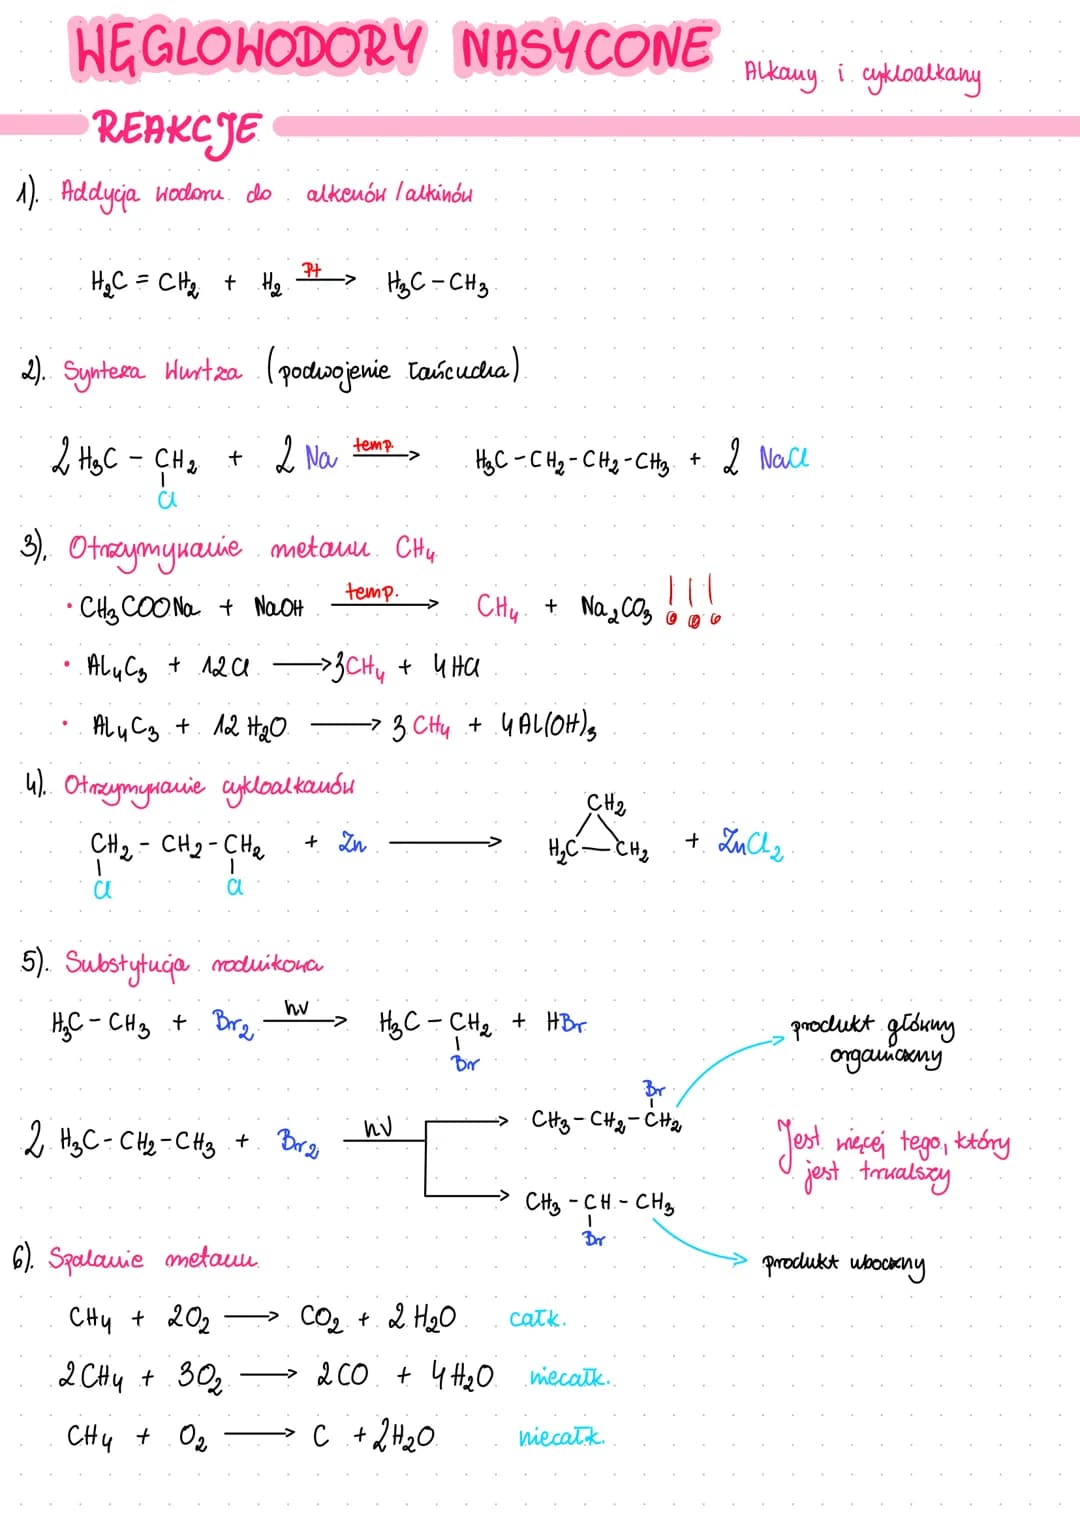 WĘGLOWODORY NASYCONE
Alkany i cykloalkany
REAKCJE
1). Addycja wodoru do alkenów / alkinów
H₂C = CH₂ + H₂ Pt ⟶ H₃C - CH₃
2). Synteza Wurtza (podwojenie łańcucha)
2 H₃C - CH₂ + 2 Na temp. ⟶ H₃C - CH₂ - CH₂ - CH₃ + 2 NaCl
Cl
3). Otrzymywanie metanu CH₄
• CH₃COONa + NaOH temp. ⟶ CH₄ + Na₂CO₃ !!!
• Al₄C₃ + 12Cl ⟶ 3CH₄ + 4HCl
• Al₄C₃ + 12 H₂O ⟶ 3 CH₄ + 4Al(OH)₃
4). Otrzymywanie cykloalkanów
CH₂
CH₂ - CH₂ - CH₂ + Zn ⟶ H₂C — CH₂ + ZnCl₂
Cl Cl
5). Substytucja rodnikowa
H₃C - CH₃ + Br₂ hν ⟶ H₃C - CH₂ + HBr
Br
produkt główny
organiczny
Br
2 H₃C - CH₂ - CH₃ + Br₂ hν ⟶ CH₃ - CH₂ - CH₂
Jest więcej tego, który
jest trwalszy
CH₃ - CH - CH₃
Br
produkt uboczny
6). Spalanie metanu
CH₄ + 2O₂ ⟶ CO₂ + 2 H₂O całk.
2CH₄ + 3O₂ ⟶ 2CO + 4H₂O niecałk.
CH₄ + O₂ ⟶ C + 2H₂O niecałk.